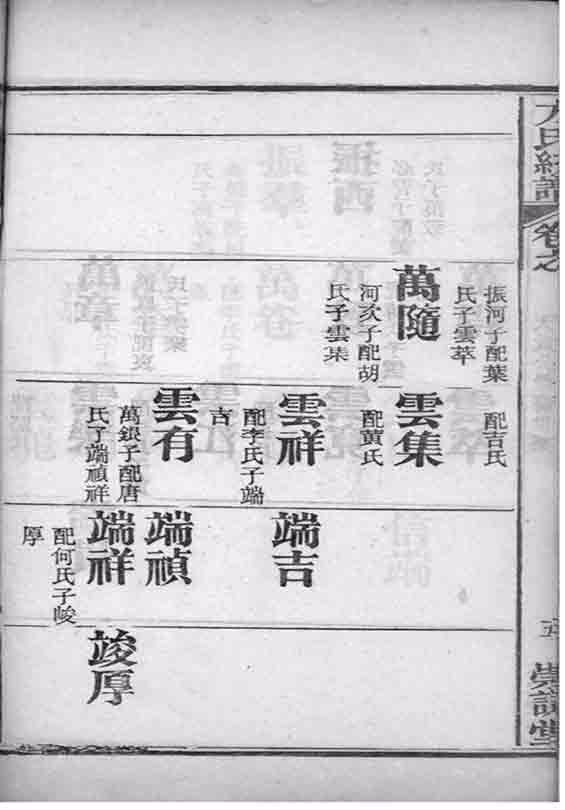 卷之
振河子配葉
氏子雲萃
萬隨
河次子配胡
氏子雲集
配吉氏
雲集
配黃氏
雲祥
配李氏子端
吉
雲有
萬銀子配唐
氏子端禎祥
端吉
端禎
端祥
配何氏子峻
厚
竣厚